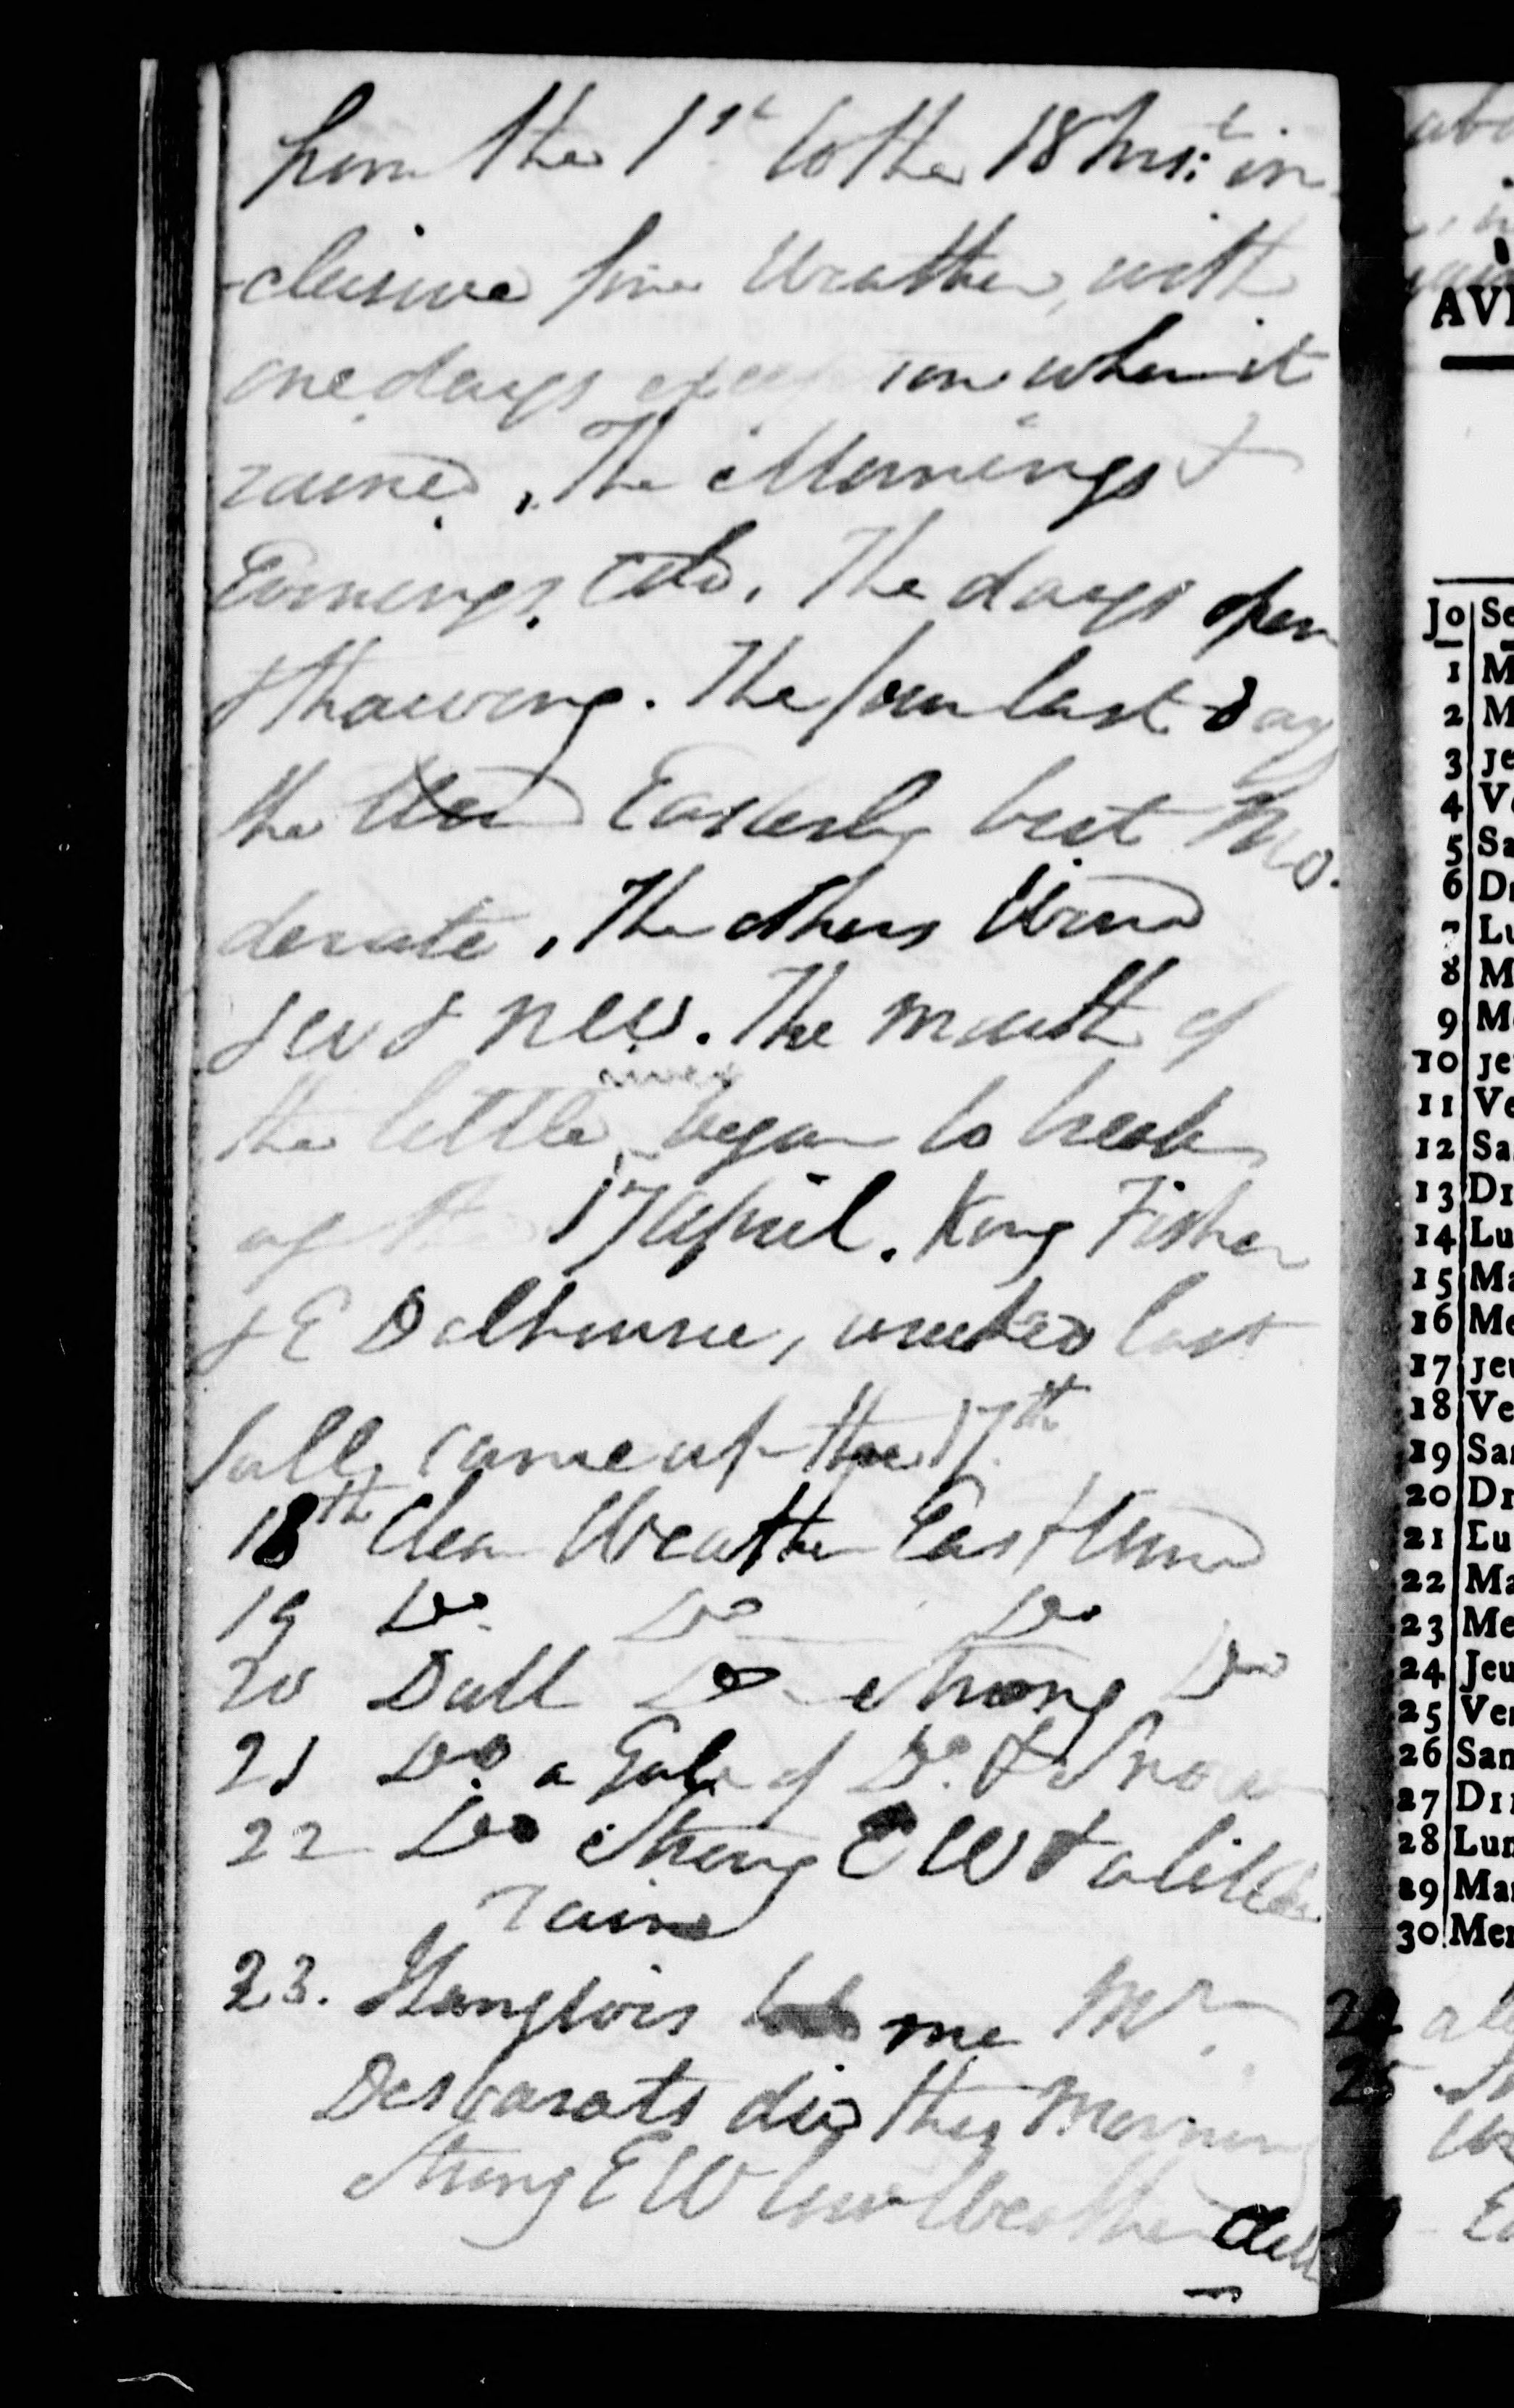 from the 1st to the 18 Inst: in
-clusive fine Weather, with
one days excep ion when it
rained. The Mornings &
Evenings Cold. The days open
& thawing. The four last day
the Wind Easterly but Mo.
derate. The others Wind
SW & NW. The mouth of
river
the little began to break
up the 17 April. King Fisher
& E Dalhousie, wrecked last
fall, came up the 17th
18th Clear Weather East Wind
19 Do. Do Do
20 Dull Do Strong Do
21 Do. a Gale of Do. & Snow
22 Do Strong E W & a little
rain
23. Stanglois told me Mr.
Desbarats died this Mornin
Strong E W Weather dull
AVI
Jo Se
1 M
2 M
3 Je
4 Ve
5 Sa
6 Di
7 Lu
8 M
9 Me
10 Je
11 Ve
12 Sa
13 Di
14 Lu
15 Ma
16 Me
17 Jeu
18 Ve
19 Sa
20 Di
21 Lu
22 Ma
23 Me
24 Jeu
25 Ver
26 Sam
27 Dim
28 Lun
29 Mar
30 Mer